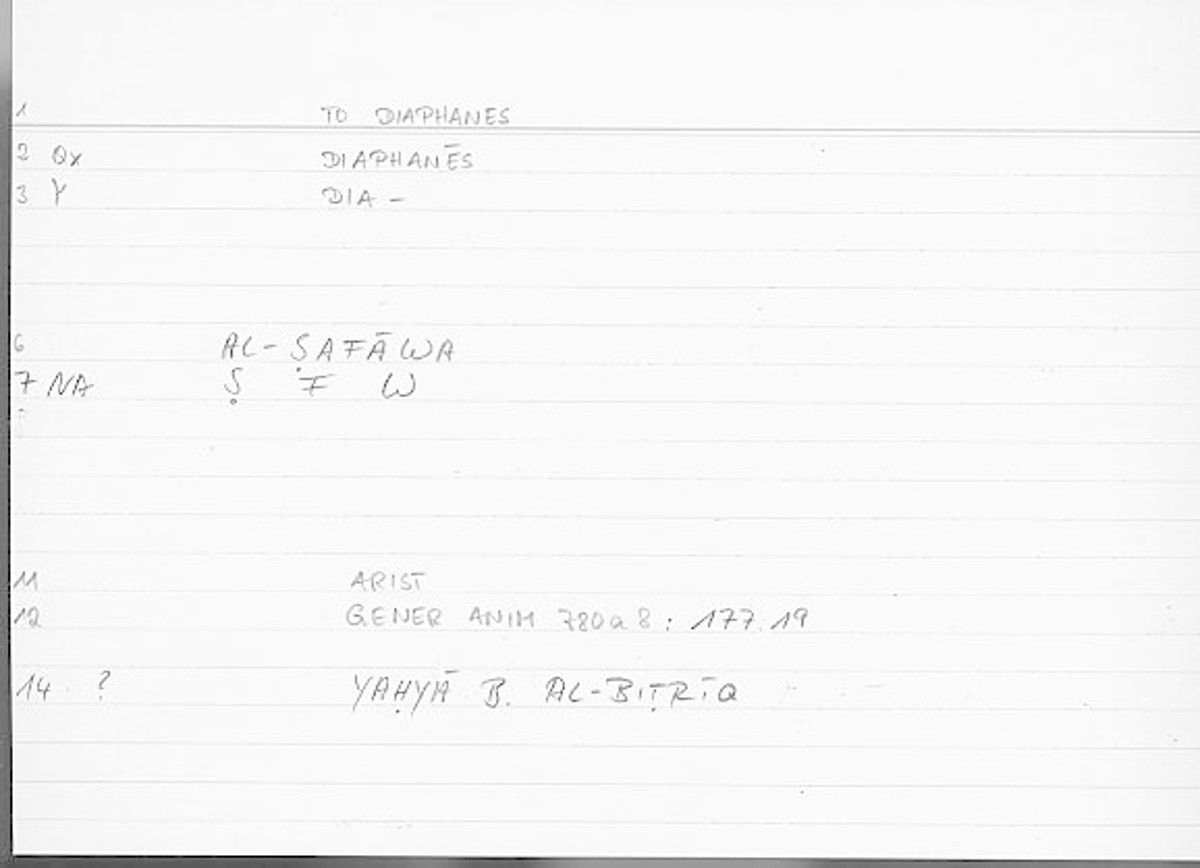 1 TO DIAPHANES
2 Qx DIAPHANĒS
3 Y DIA -
6 AL-ṢAFĀWA
7 NA Ṣ F W
11 ARIST
12 GENER ANIM 780a8: 177.19
14 ? YAḤYĀ B. AL-BIṬRĪQ